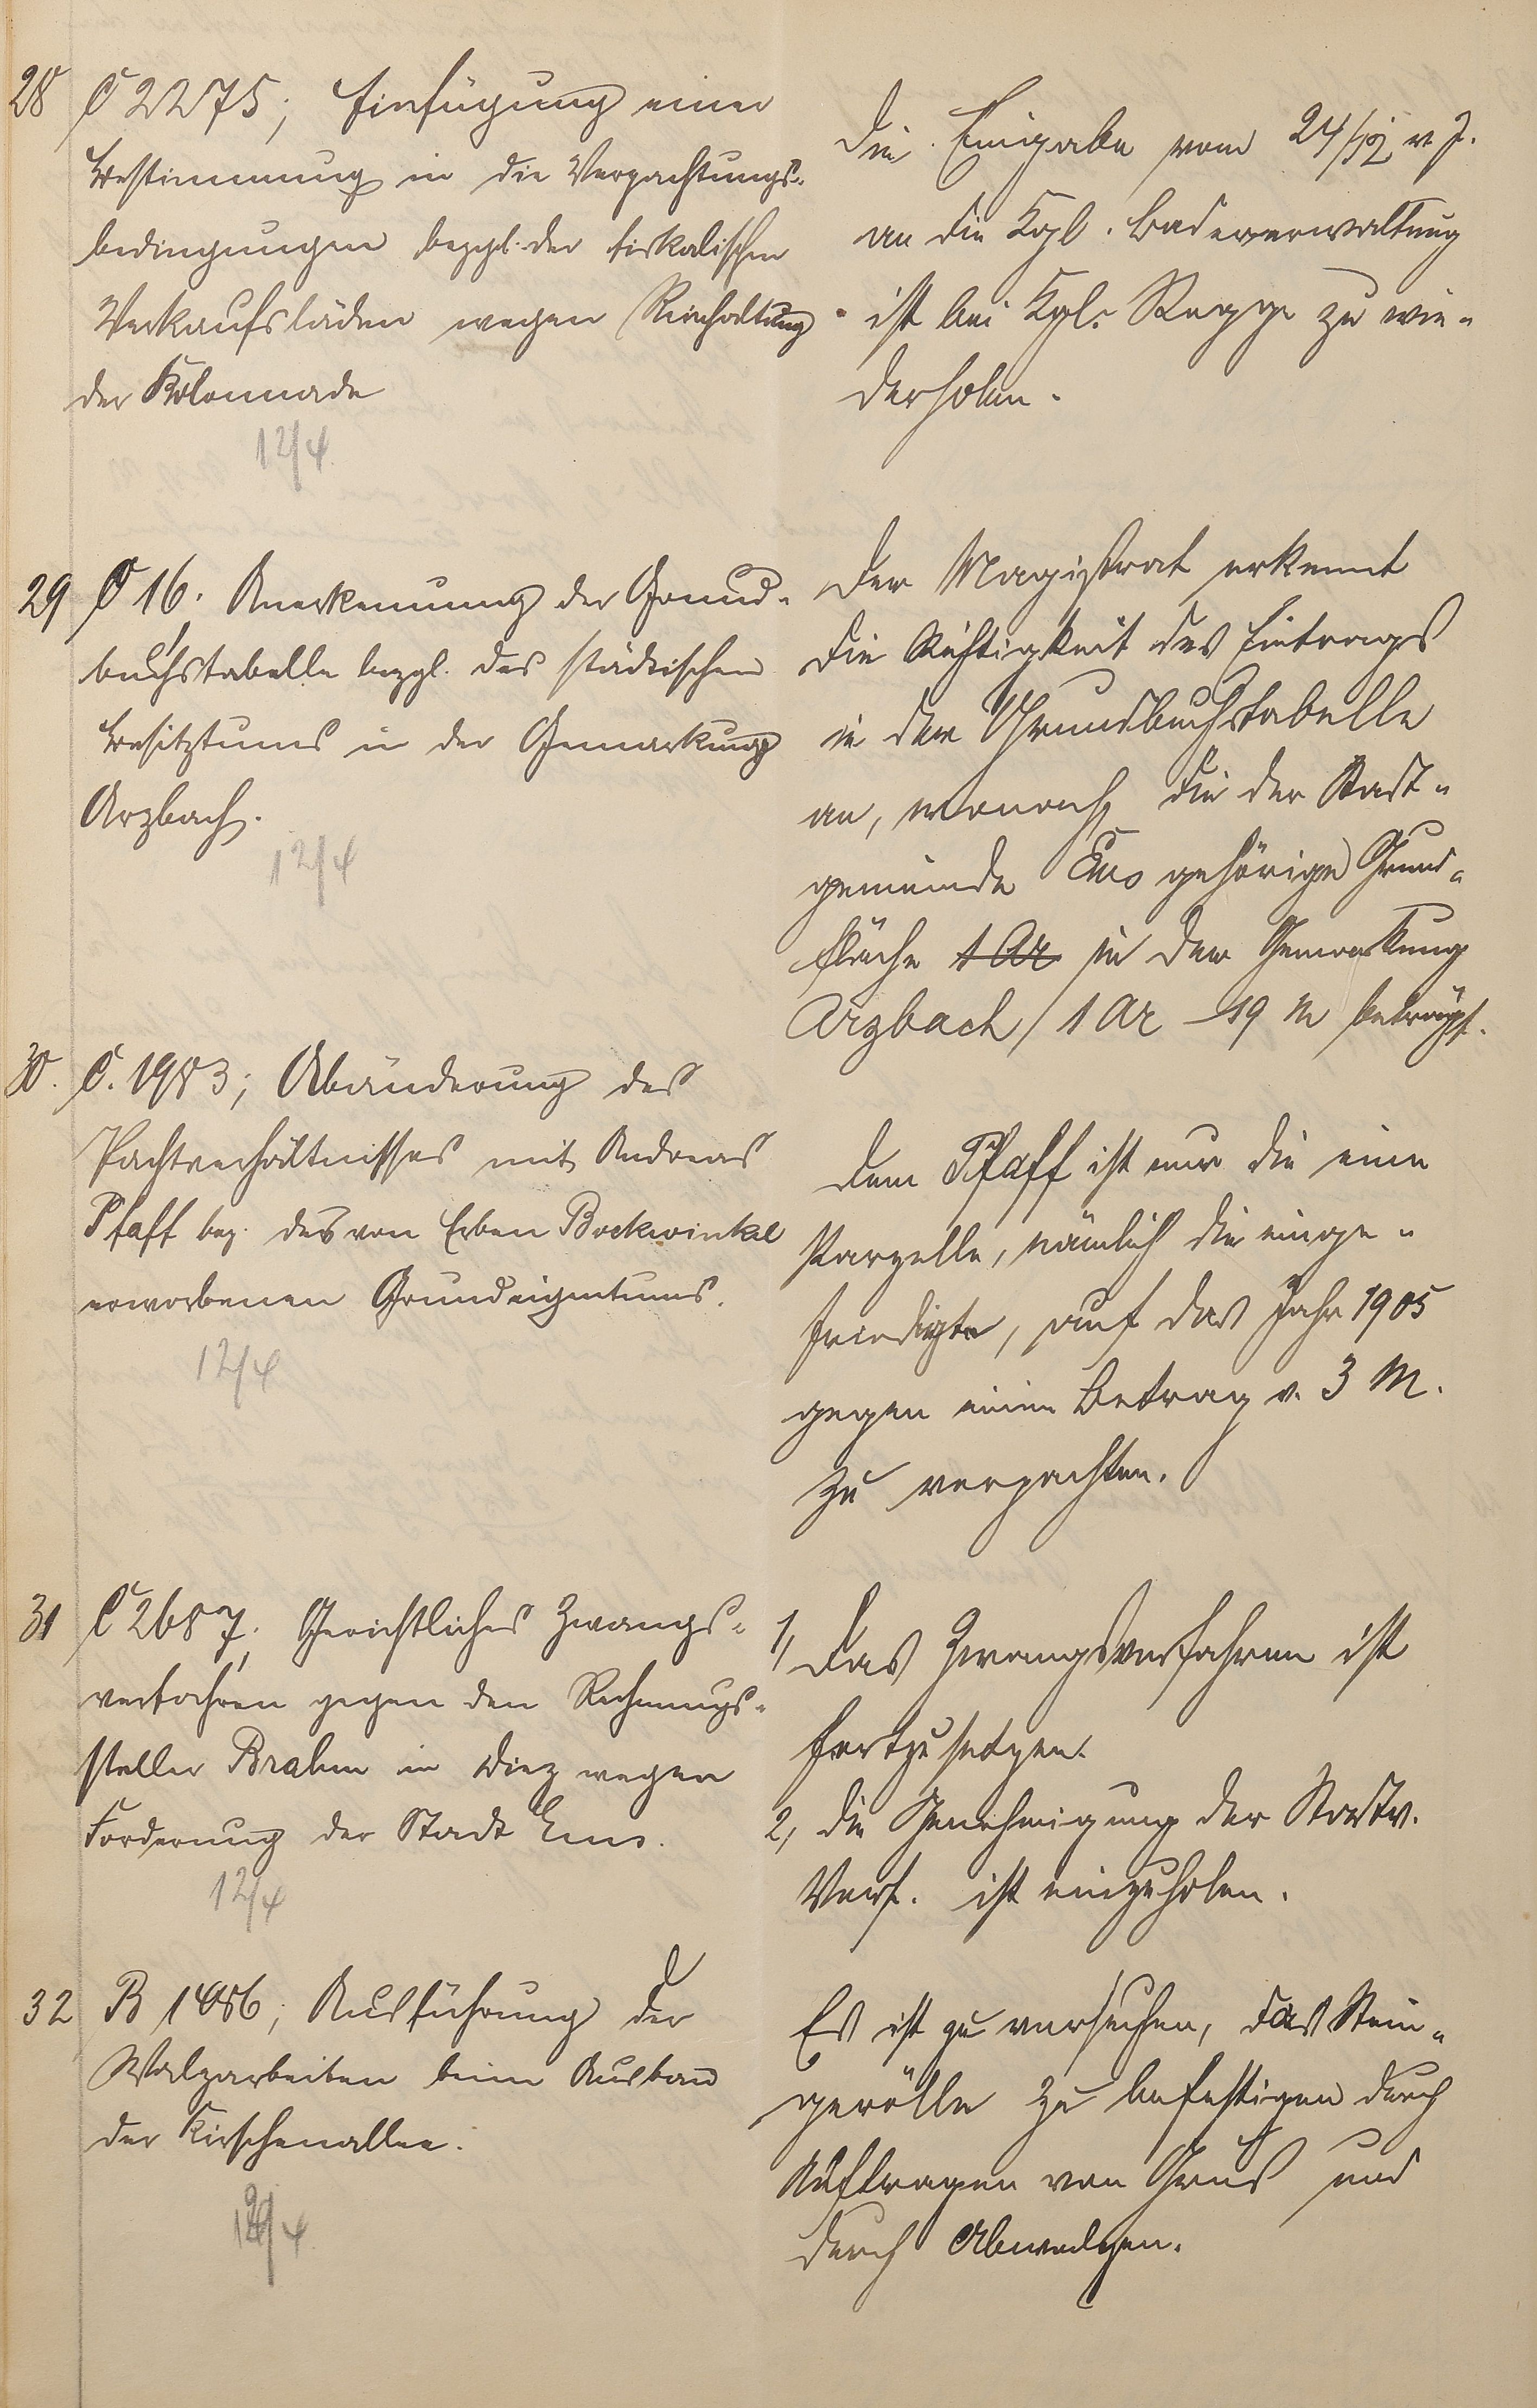 28 C 2275; Einfügung einer
Bestimmung in die Verpachtungs-
bedingungen bezgl. der fiskalischen
Verkaufsläden wegen Reinhaltung
der Kolonnade
12/4
Die Eingabe vom 24/12 v. J.
an die Kgl. Badeverwaltung
ist bei Kgl. Regge zu wie-
derholen.
29 C 16; Anerkennung der Grund-
buchstabelle bezgl. des städtischen
Besitztums in der Gemarkung
Arzbach.
12/4
Der Magistrat erkennt
die Richtigkeit des Eintrags
in der Grundbuchstabelle
an, wonach die der Stadt-
gemeinde Ems gehörige Grund-
fläche 1 Ar in der Gemarkung
Arzbach / 1 Ar - 19 M beträgt.
30. C. 1983; Abänderung des
Pachtverhältnisses mit Andreas
Pfaff bez. des von Erben Bockwinkel
erworbenen Grundeigentums.
12/4
Dem Pfaff ist nur die eine
Parzelle, nämlich die einge-
friedigte, auf das Jahr 1905
gegen einen Betrag v. 3 M.
zu verpachten.
31 C 2687; Gerichtliches Zwangs-
verfahren gegen den Rechnungs-
steller Brahm in Diez wegen
Forderung der Stadt Ems.
12/4
1, Das Zwangsverfahren ist
fortzusetzen.
2, die Genehmigung der Stadtv.
Vers. ist einzuholen.
32 B 1486; Ausführung der
Walzarbeiten beim Ausbau
der Kirschenallee.
12/4
Es ist zu versuchen, das Stein-
gerölle zu befestigen durch
Auftragen von Grus und
durch Abwalzen.